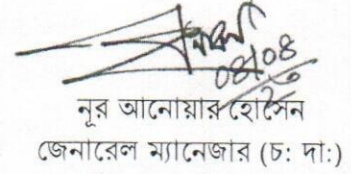 ০৪/০৪
নূর আনোয়ার হোসেন
জেনারেল ম্যানেজার (চ: দা:)